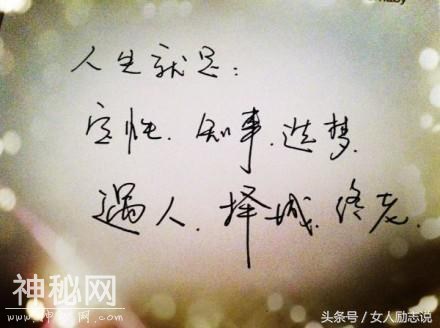 人生就是：
定性、知事、造梦、
遇人、择城、终老.
神秘网
头条号／女人励志说